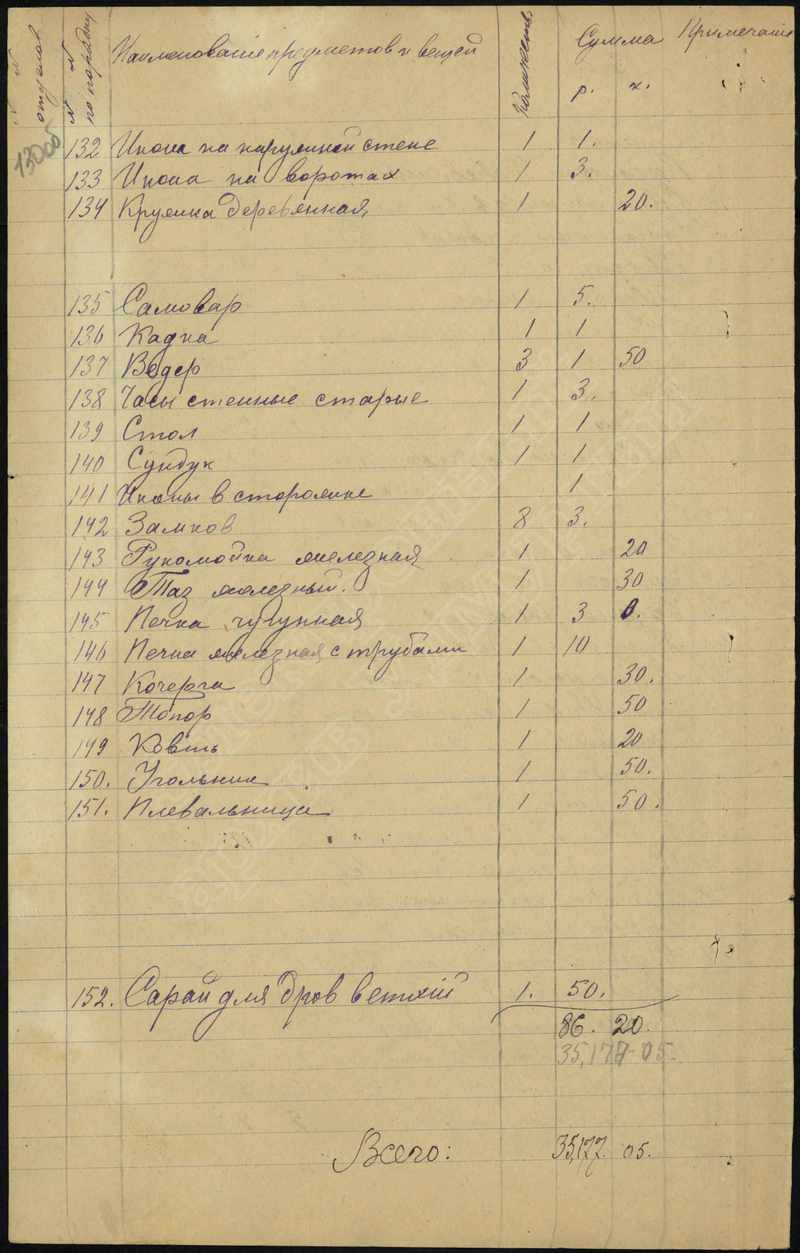 №№ отделов № № по порядку Наименование предметов и вещей Количеств. Сумма Примечание
р. к.
130об
132 Икона на наружной стене 1 1.
133 Икона на воротах 1 3.
134 Кружка деревянная 1 20.
135 Самовар 1 5.
136 Кадка 1 1
137 Ведер 3 1 50
138 Часы стенные старые 1 3.
139 Стол 1 1
140 Сундук 1 1
141 Иконы в сторожке 1
142 Замков 8 3.
143 Рукомойка железная 1 20
144 Таз железный. 1 30
145 Печка чугунная 1 3 0.
146 Печка железная с трубами 1 10
147 Кочерга 1 30.
148 Топор 1 50
149 Ковшь 1 20
150. Угольник 1 50.
151. Плевальница 1 50.
152. Сарай для дров ветхий 1. 50.
86. 20.
35,177-05.
Всего: 35,177. 05.